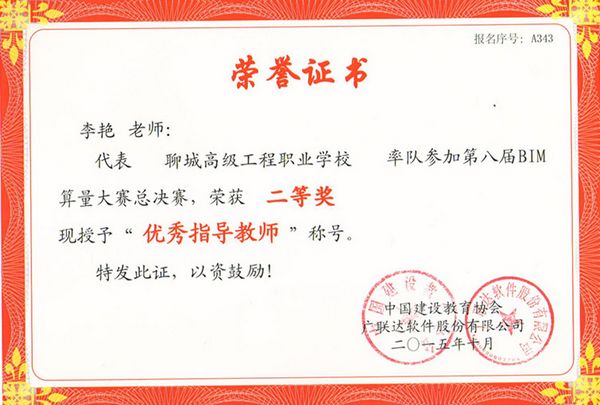 报名序号：A343
荣誉证书
李艳 老师：
代表 聊城高级工程职业学校 率队参加第八届BIM
算量大赛总决赛，荣获 二等奖
现授予“优秀指导教师”称号。
特发此证，以资鼓励！
中国建设教育协会
广联达软件股份有限公司
二〇一五年十月